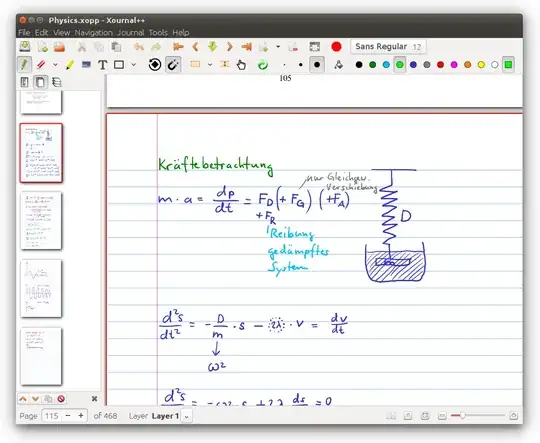 Physics.xopp - Xournal++
File Edit View Navigation Journal Tools Help
Sans Regular 12
105
Kräftebetrachtung
nur Gleichgew.
Verschiebung
m · a = dp/dt = F_D (+ F_G) (+F_A)
+ F_R
Reibung
gedämpftes
System
D
d²s/dt² = - D/m · s - 2λ · v = dv/dt
↓
ω²
d²s = -ω² s + 2λ ds = 0
Page 115 of 468 Layer Layer 1